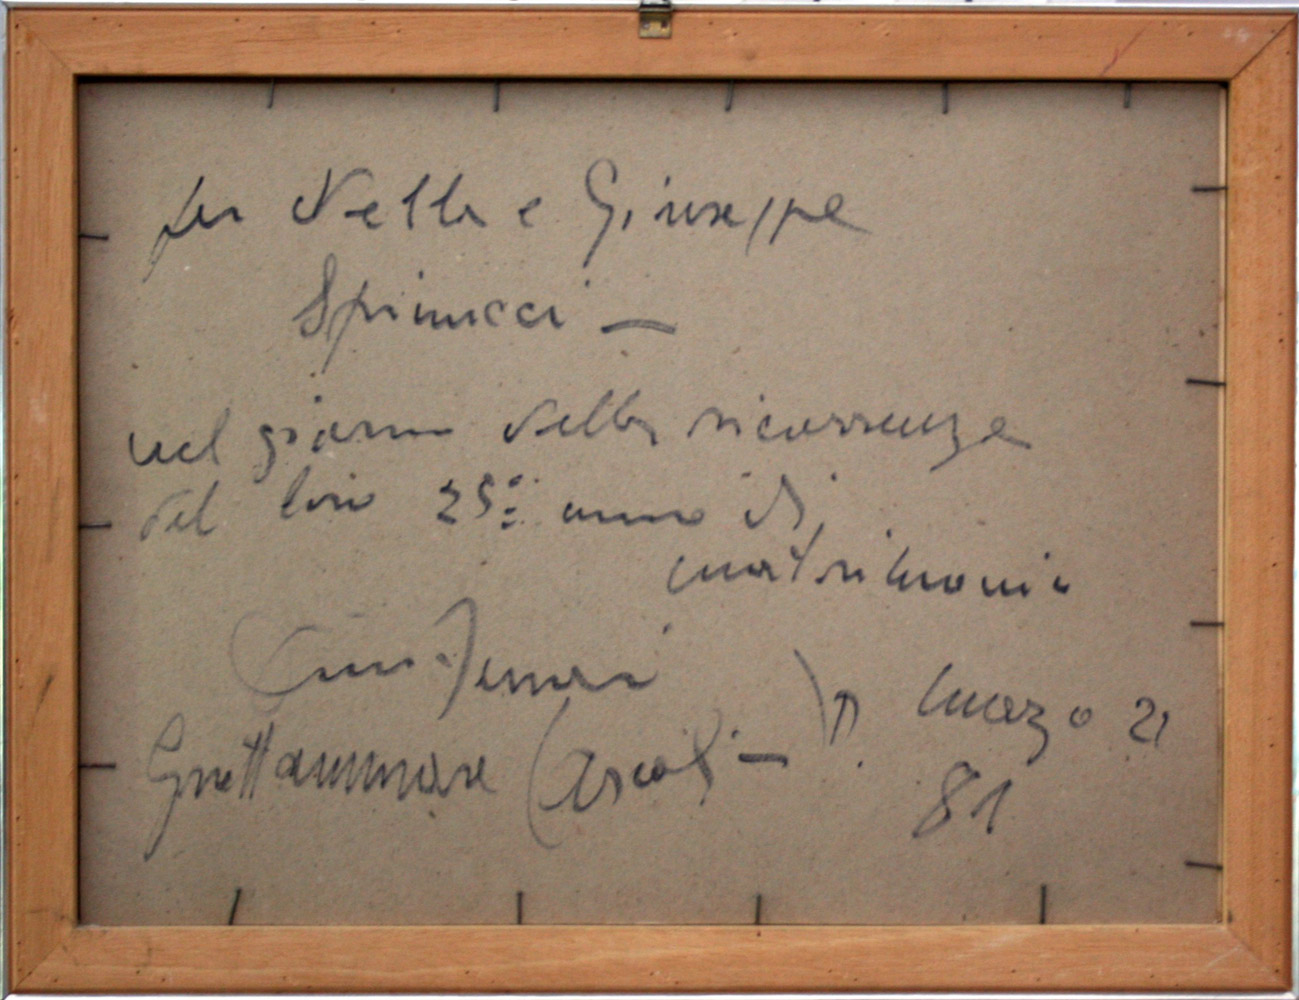 per Nella e Giuseppe
Spinucci —
nel giorno della ricorrenza
del loro 25° anno di
matrimonio
Ferrari
Grottammare (Ascoli —)
marzo 21
81